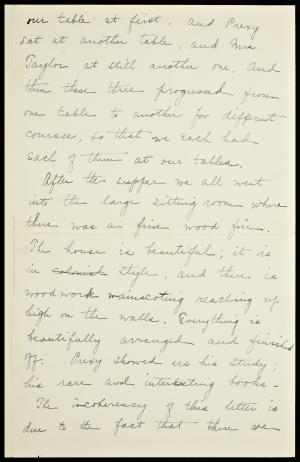 our table at first. And Prexy
sat at another table, and Mrs.
Taylor at still another one. And
then those three progressed from
one table to another for different
courses, so that we each had
each of them at our tables.
After the supper we all went
into the large sitting room where
there was a fine wood fire.
The house is beautiful; it is
in colonial style, and there is
woodwork wainscoting reaching up
high on the walls. Everything is
beautifully arranged and finished
off. Prexy showed us his study;
his rare and interesting books-
The incoherency of this letter is
due to the fact that there are